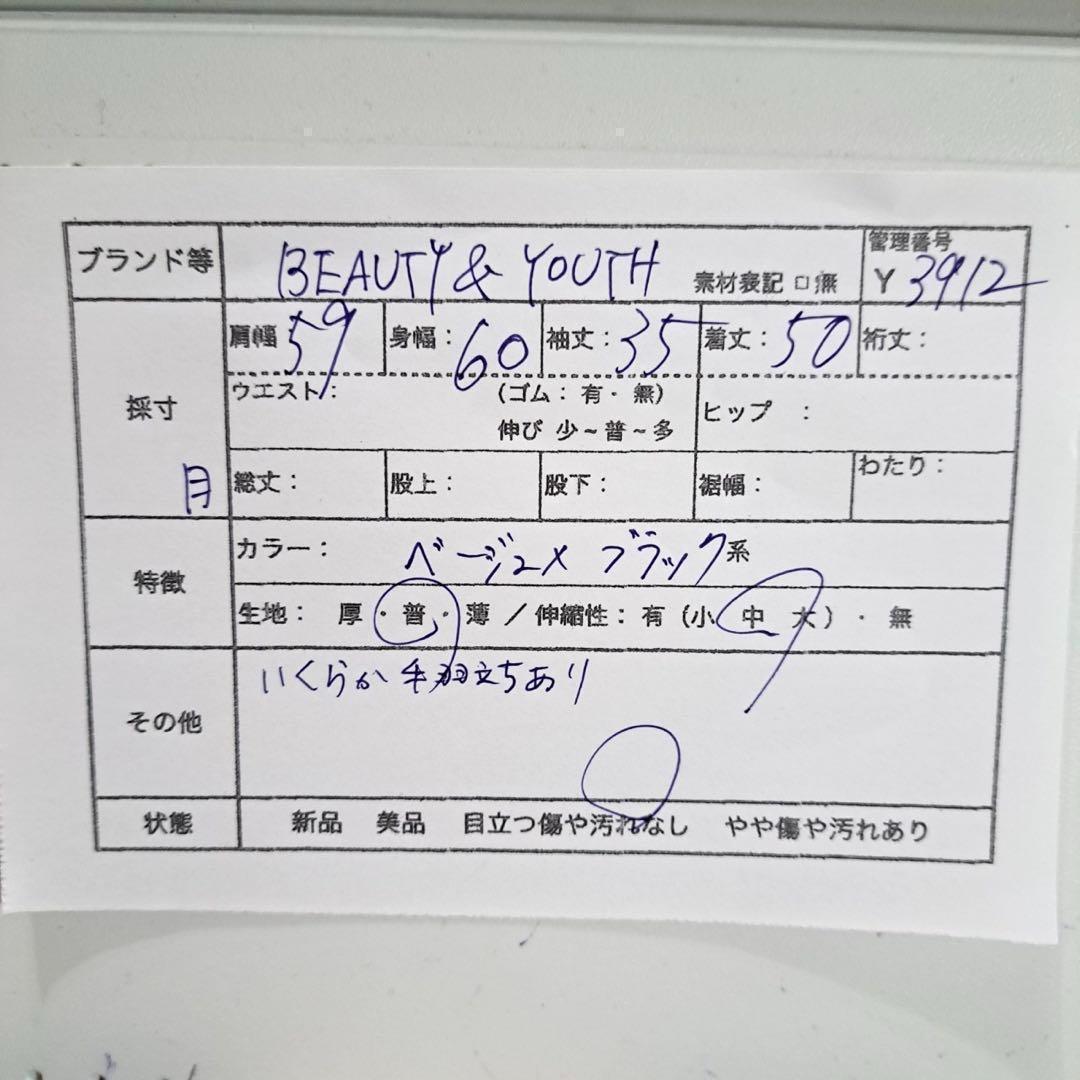 ブランド等 BEAUTY & YOUTH 素材表記 □ 無 管理番号 Y 3912
採寸 肩幅 59 身幅: 60 袖丈: 35 着丈: 50 裄丈:
ウエスト: (ゴム: 有・無) ヒップ :
伸び 少~普~多
月 総丈: 股上: 股下: 裾幅: わたり:
特徴 カラー: ベージュ× ブラック系
生地: 厚・普・薄 / 伸縮性: 有 (小 中 大) ・ 無
その他 いくらか毛羽立ちあり
状態 新品 美品 目立つ傷や汚れなし やや傷や汚れあり